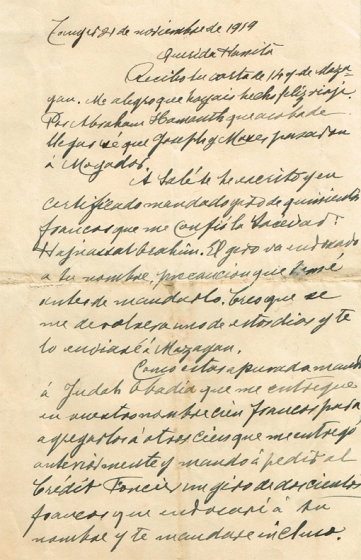 Tanger 21 de noviembre de 1919
Querida Hanita
Recibo tu carta de 14 y de Maza-
gan. Me alegro que hayais hecho feliz viaje.
Por Abraham que acaba de
llegar sé que Joseph y Moses pasaron
á Mogador.
Á Salé te he escrito y en
certificado mandado giro de quinientos
francos que me confió la Sociedad
Hajnassat Orahim. El giro va endosado
a tu nombre, precaucion que tomé
antes de mandarlo. Creo que se
me devolverá uno de estos dias y te
lo enviaré á Mazagan.
Como estás apurada mandé
á Judah Obadia que me entregue
en vuestro nombre cien francos para
agregarlos á otros cien que me entregó
anteriormente y mandó á pedir al
Crédit Foncier un giro de doscientos
francos que endosará á tu
nombre y te mandaré incluso.